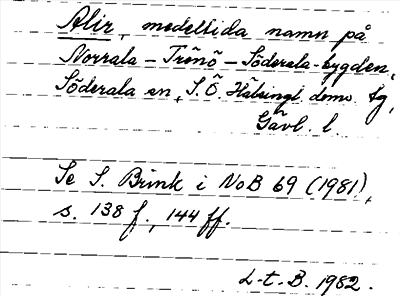 Alir, medeltida namn på
Norrala – Trönö – Söderala-bygden,
Söderala sn, S. Ö. Hälsingl. doms. tg,
Gävl. l.
Se S. Brink i NoB 69 (1981),
s. 138 f., 144 ff.
L-t-B. 1982.